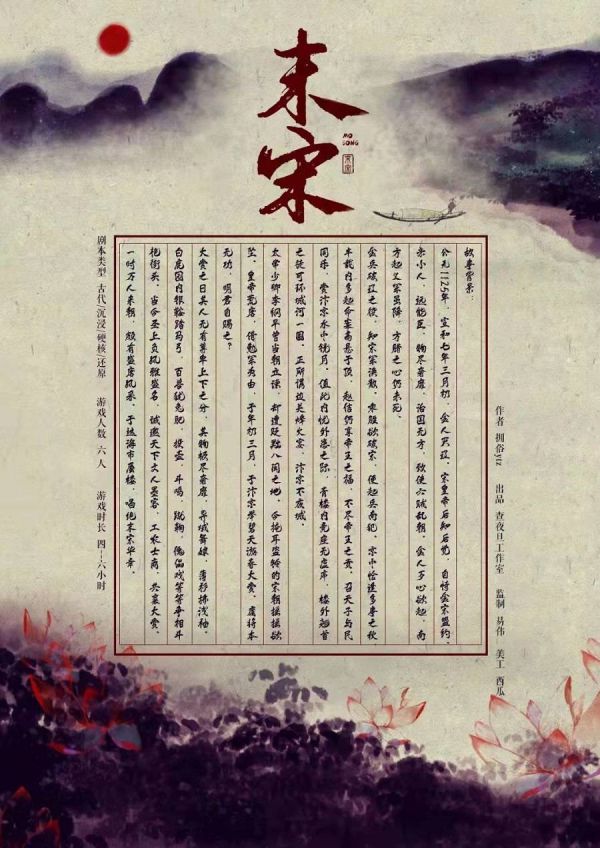 末宋
MO
SONG
故事背景:
公元1125年,宣和七年三月初,金人灭辽,宋皇帝后知后觉,自恃金宋盟约,
亲小人,远能臣,物尽奢靡,治国无方,致使六贼乱朝,金人歹心欲起,南
方起义军虽降,方腊之心仍未死。
金兵破辽之役,知宋军涣散,欲破宋,便起兵南犯,京中恰逢多事之秋
半载内多起命案高悬于顶,赵佶仍享帝王之福,不尽帝王之责,召天子与民
同乐,赏汴京水中镜月,值此内忧外患之际,青楼内竟座无虚席,楼外翘首
之徒可环城河一圈,正所谓边关烽火宴,汴京不夜城。
太常少卿李纲早曾当朝立谏,却遭贬黜八闽之地,今掩耳盗铃的宋朝摇摇欲
坠,皇帝荒唐,借勉军为由,于年初三月,于汴京举碧天游春大赏,虞将本
无功,明君自赐之?
大赏之日其人无有尊卑上下之分,其物极尽奢靡,异域舞娘,薄纱拂浅袖,
白虎园内银鞍踏马弓,百兽犹克肥,投壶,斗鸡,蹴鞠,傀儡戏等等争相斗
艳街头,当今圣上负风雅盛名,诚邀天下文人墨客,工农士商,共襄大赏,
一时万人来朝,颇有盛唐风采,于此海市蜃楼,唱绝末宋华章。
作者 拥俗ytz 出品 查夜旦工作室 监制 易伟 美工 西瓜
剧本类型 古代/沉浸/硬核/还原 游戏人数 六人 游戏时长 四-六小时